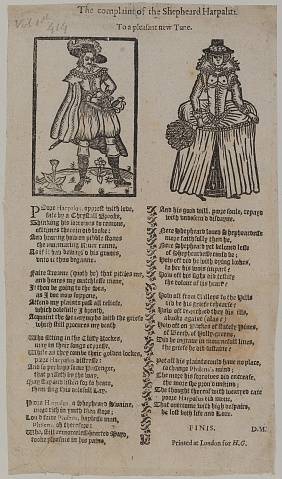 The complaint of the Shepheard Harpalus.
To a pleasant new Tune.
POore Harpalus, opprest with love,
sate by a Christall Brooke,
Thinking his sorrowes to remove,
oftimes therein did looke:
And hearing how on pibble stones
the murmuring River ranne,
As if it had bewayl'd his grones,
unto it thus beganne.
Faire streame (quoth he) that pitties me,
and heares my matchlesse mone,
If thou be going to the sea,
as I doe now suppone,
Attend my plaints past all reliefe,
which dolefully I breath,
Acquaint the Sea-nymphs with the griefe
which still procures my death
Who sitting in the Cliffy Rockes,
may in their songs expresse,
While as they combe their golden locks,
poore Harpalus distresse:
And so perhaps some Passenger,
that passeth by the way,
May stay and listen for to heare,
them sing this dolefull Lay.
Poore Harpalus a Shepheard Swaine,
more rich in youth than store,
Lov'd faire Philena, haplesse man,
Philena, oh therefore:
Who, still remorcelesse hearted Mayd,
tooke pleasure in his paine,
And his good will, poore soule, repayd
with undeserv'd disdayne.
Nere Shepheard loved Shepheardesse
more faithfully then he,
Nere Shepheard yet beloved lesse
of Shepheardesse could be:
How oft did he with dying lookes,
to her his woes impart?
How oft his sighs did testifie
the dolour of his heart?
How oft from Valleys to the Hills
did he his griefe rehearse?
How oft re-ecchoed they his ills,
abacke againe (alas)
How oft on Barkes of stately Pines,
of Beech, of Holly-greene,
Did he ingrave in mournefull lines,
the griefe he did sustaine?
Yet all his plaints could have no place,
to change Philena's mind;
The more his sorrowes did encrease,
the more she prov'd unkind,
The thought thereof with wearied care
poore Harpalus did move,
That overcome with high despaire,
he lost both life and Love.
FINIS.
D.M.
Printed at London for H.G.